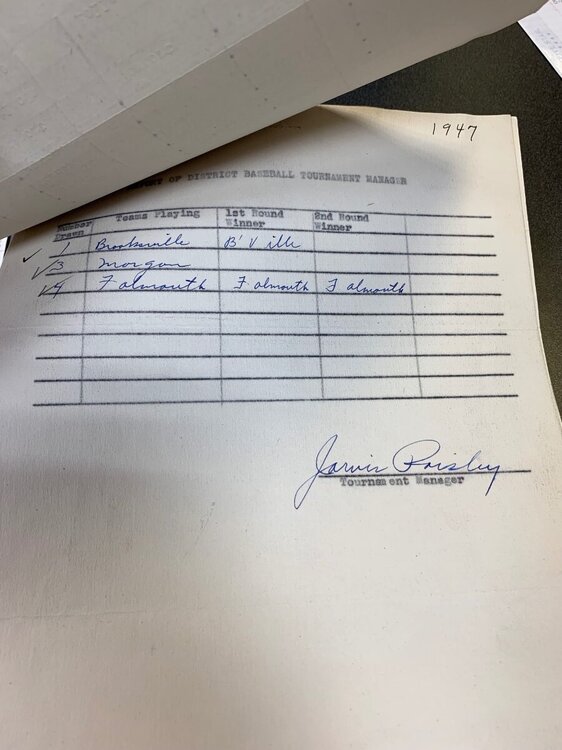 1947
OF DISTRICT BASEBALL TOURNAMENT MANAGER
Number Drawn Teams Playing 1st Round Winner 2nd Round Winner
1 Brooksville B'Ville
3 Morgan
4 Falmouth Falmouth Falmouth
Jarvis Parsley
Tournament Manager